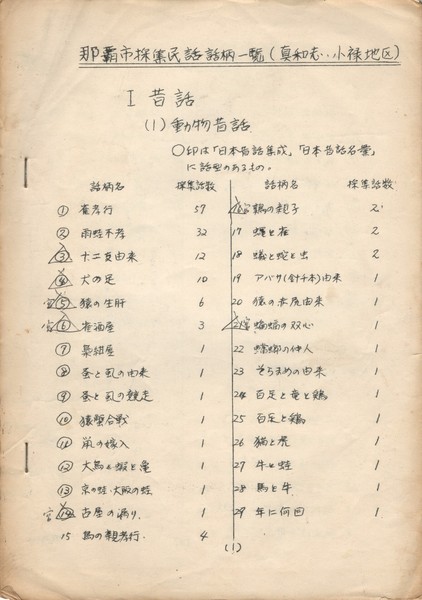 那覇市採集民話話柄一覧(真和志・小禄地区)
I 昔話
(1) 動物昔話
○印は「日本昔話集成」、「日本昔話名彙」
に話型のあるもの。
話柄名 採集話数
① 雀孝行 57
② 雨蛙不孝 32
③ 十二支由来 12
④ 犬の足 10
⑤ 猿の生肝 6
⑥ 雀酒屋 3
⑦ 梟紺屋 1
⑧ 蚤と虱の由来 1
⑨ 蚤と虱の競走 1
⑩ 猿蟹合戦 1
⑪ 鼠の嫁入 1
⑫ 大鳥と蝦と亀 1
⑬ 京の蛙・大阪の蛙 1
⑭ 古屋の漏り 1
15 鳥の親孝行 4
話柄名 採集話数
鶏の親子 2
17 蠅と雀 2
18 蟻と蛇と虫 2
19 アバサ(針千本)由来 1
20 猿の赤尻由来 1
21 蝙蝠の双心 1
22 蟷螂の仲人 1
23 そらまめの由来 1
24 百足と竜と鶏 1
25 百足と鶏 1
26 猫と虎 1
27 牛と蛙 1
28 馬と牛 1
29 年に何回 1
(1)